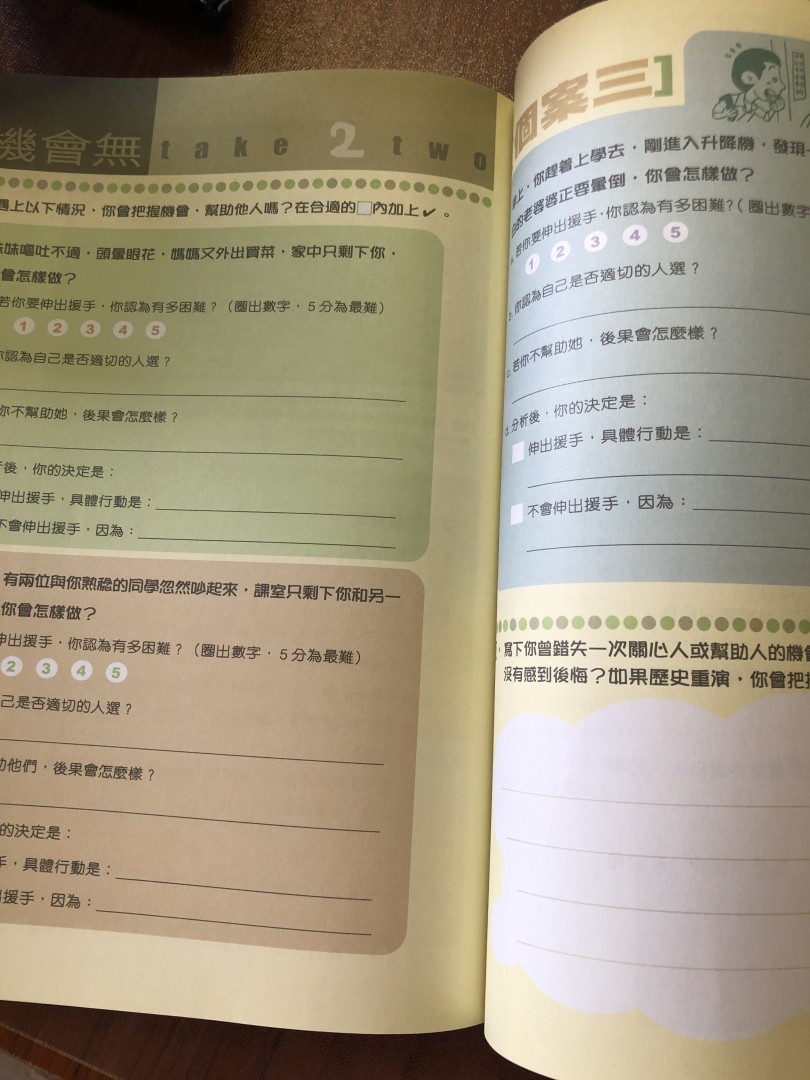 機會無 take 2 two
遇上以下情況，你會把握機會，幫助他人嗎？在合適的□內加上✔。
妹嘔吐不適，頭暈眼花，媽媽又外出買菜，家中只剩下你，
會怎樣做？
若你要伸出援手，你認為有多困難？（圈出數字，5分為最難）
1 2 3 4 5
你認為自己是否適切的人選？
你不幫助她，後果會怎麼樣？
後，你的決定是：
伸出援手，具體行動是：
不會伸出援手，因為：
有兩位與你熟稔的同學忽然吵起來，課室只剩下你和另一
你會怎樣做？
伸出援手，你認為有多困難？（圈出數字，5分為最難）
2 3 4 5
己是否適切的人選？
助他們，後果會怎麼樣？
的決定是：
手，具體行動是：
援手，因為：
個案三]
上，你趕着上學去，剛進入升降機，發現
的老婆婆正吞暈倒，你會怎樣做？
a. 若你要伸出援手，你認為有多困難？（圈出數字
1 2 3 4 5
b. 你認為自己是否適切的人選？
c. 若你不幫助她，後果會怎麼樣？
d. 分析後，你的決定是：
伸出援手，具體行動是：
不會伸出援手，因為：
寫下你曾錯失一次關心人或幫助人的機會
沒有感到後悔？如果歷史重演，你會把